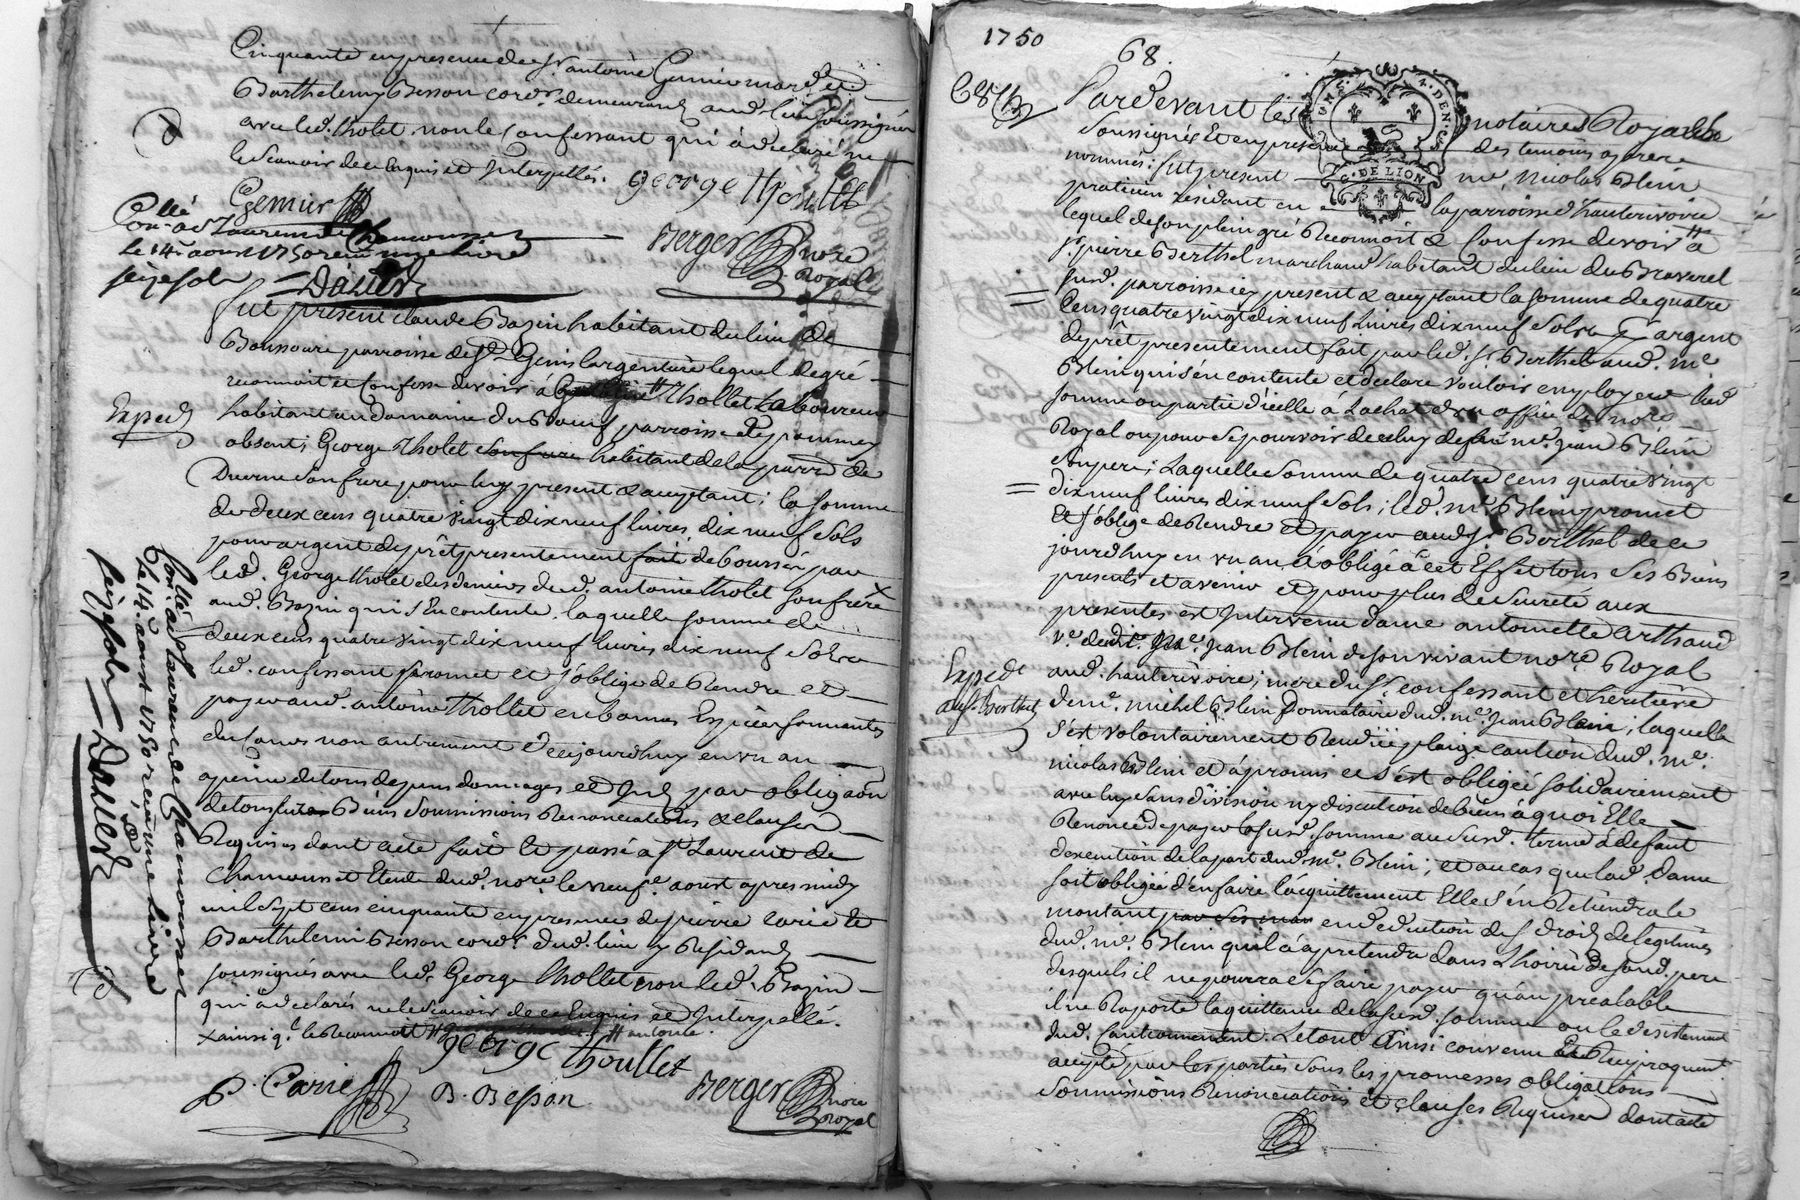 Cinquante en presence de sr. antoine Gemier march. et
Barthelemy Besson cord.r demeurants aud. lieu soussignés
avec led. tholet, non le confessant qui a déclaré ne
le scavoir de ce enquis et Interpellés. george thoullet
Gemier
Con.lé a St Laurent de Chamousset
le 14e aoust 1750 recu une livre
seize sols Dauer
Berger nore Royal
fut présent claude Bazin habitant du lieu de
Boussoure parroisse de St Genis largentière lequel de gré
reconnoit et confesse devoir à Thollet Laboureur
habitant au domaine du parroisse d'eypommey
absent, George Tholet son frere habitant de la parr. de
Duerne son frere pour luy present & acceptant; la somme
de deux cens quatre vingt dix neuf livres dix neuf sols
pour argent de prêt presentement fait de boursé par
led. George tholet des deniers dud. antoine tholet son frère
aud. Bazin qui s'en contente, laquelle somme de
deux cens quatre vingt dix neuf livres dix neuf sols
led. confessant promet et s'oblige de Rendre et
payer aud. antoine Thollet en bonnes Espèces sonnantes
du jour non autrement d'aujourdhuy en un an
a peine de tous depens domages et Int. par obligaõn
de tous ses Biens soumissions Renonciations & clauses
Requises dont acte fait et passé a St Laurent de
Chamousset Etude dud. nore. le neuf.e aoust apres midy
mil sept cens cinquante en presence de pierre carié et
Barthelemi Besson cord.r dud. lieu y Résidans
soussignés avec led. George Thollet non led. Bazin
qui a declarés ne le scavoir de ce Enquis et Interpellé.
x ainsi q.l le Reconnoit # antoine.
george thoullet
P. Carrié B. Besson Berger nore Royal
Exped.
Con.lé a St Laurent de Chamousset
le 14e aoust 1750 recu une livre
seize sols Dauer
1750
68.
Pardevant les notaires Royaux
soussignés Et en presence des temoins apres
nommés: fut present me. Nicolas Blein
praticien residant en la parroisse d'hauterivoire
lequel de son plein gré Reconnoit & Confesse devoir a
sr. pierre Berthel marchand habitant du lieu du Braverel
susd. parroisse icy present & acceptant la somme de quatre
Cens quatre vingt dix neuf livres dix neuf sols argent
de prêt presentement fait par led. sr. Berthel aud. me.
Blein qui s'en contente et declare vouloir employer lad.
somme ou partie d'icelle à Lachat d'un office de nore
Royal ou pour se pourvoir de celuy de feu me. jean Blein
son pere; Laquelle somme de quatre cens quatre vingt
dix neuf livres dix neuf sols; led. me. Blein promet
Et s'oblige de Rendre et payer aud. sr. Berthel de ce
jourdhuy en un an, a obligé à cet Effet tous ses Biens
presents et avenir et pour plus de seureté aux
presentes est Intervenue dame antoinette arthaud
ve. dud. me. jean Blein de son vivant nore. Royal
aud. hauterivoire; mere du sr. confessant et heritiere
de me. michel Blein Donnataire dud. me. jean Blein; laquelle
s'est volontairement Rendüe pleige caution dud. me.
nicolas Blein et a promis et s'est obligée solidairement
avec luy sans division ny discution de biens à quoi Elle
Renonce de payer la susd. somme au susd. terme à defaut
d'execution de la part dud. me. Blein; et au cas que lad. Dame
soit obligée d'en faire l'acquittement Elle s'en Retiendra le
montant par ses mains en deduction de s. droits de legitimes
dud. me. Blein qu'il a à pretendre dans L'hoirie de sond. pere
desquels il ne pourra se faire payer qu'au prealable
il ne Raporte la quittance de la susd. somme ou le desistement
dud. Cautionnement. Le tout ainsi convenu et Reciproquem.t
accepté par les parties sous les promesses obligations
soumissions Renonciations et clauses Requises dont acte
Exped.
aud. sr. Berthel
GEN. DE LION